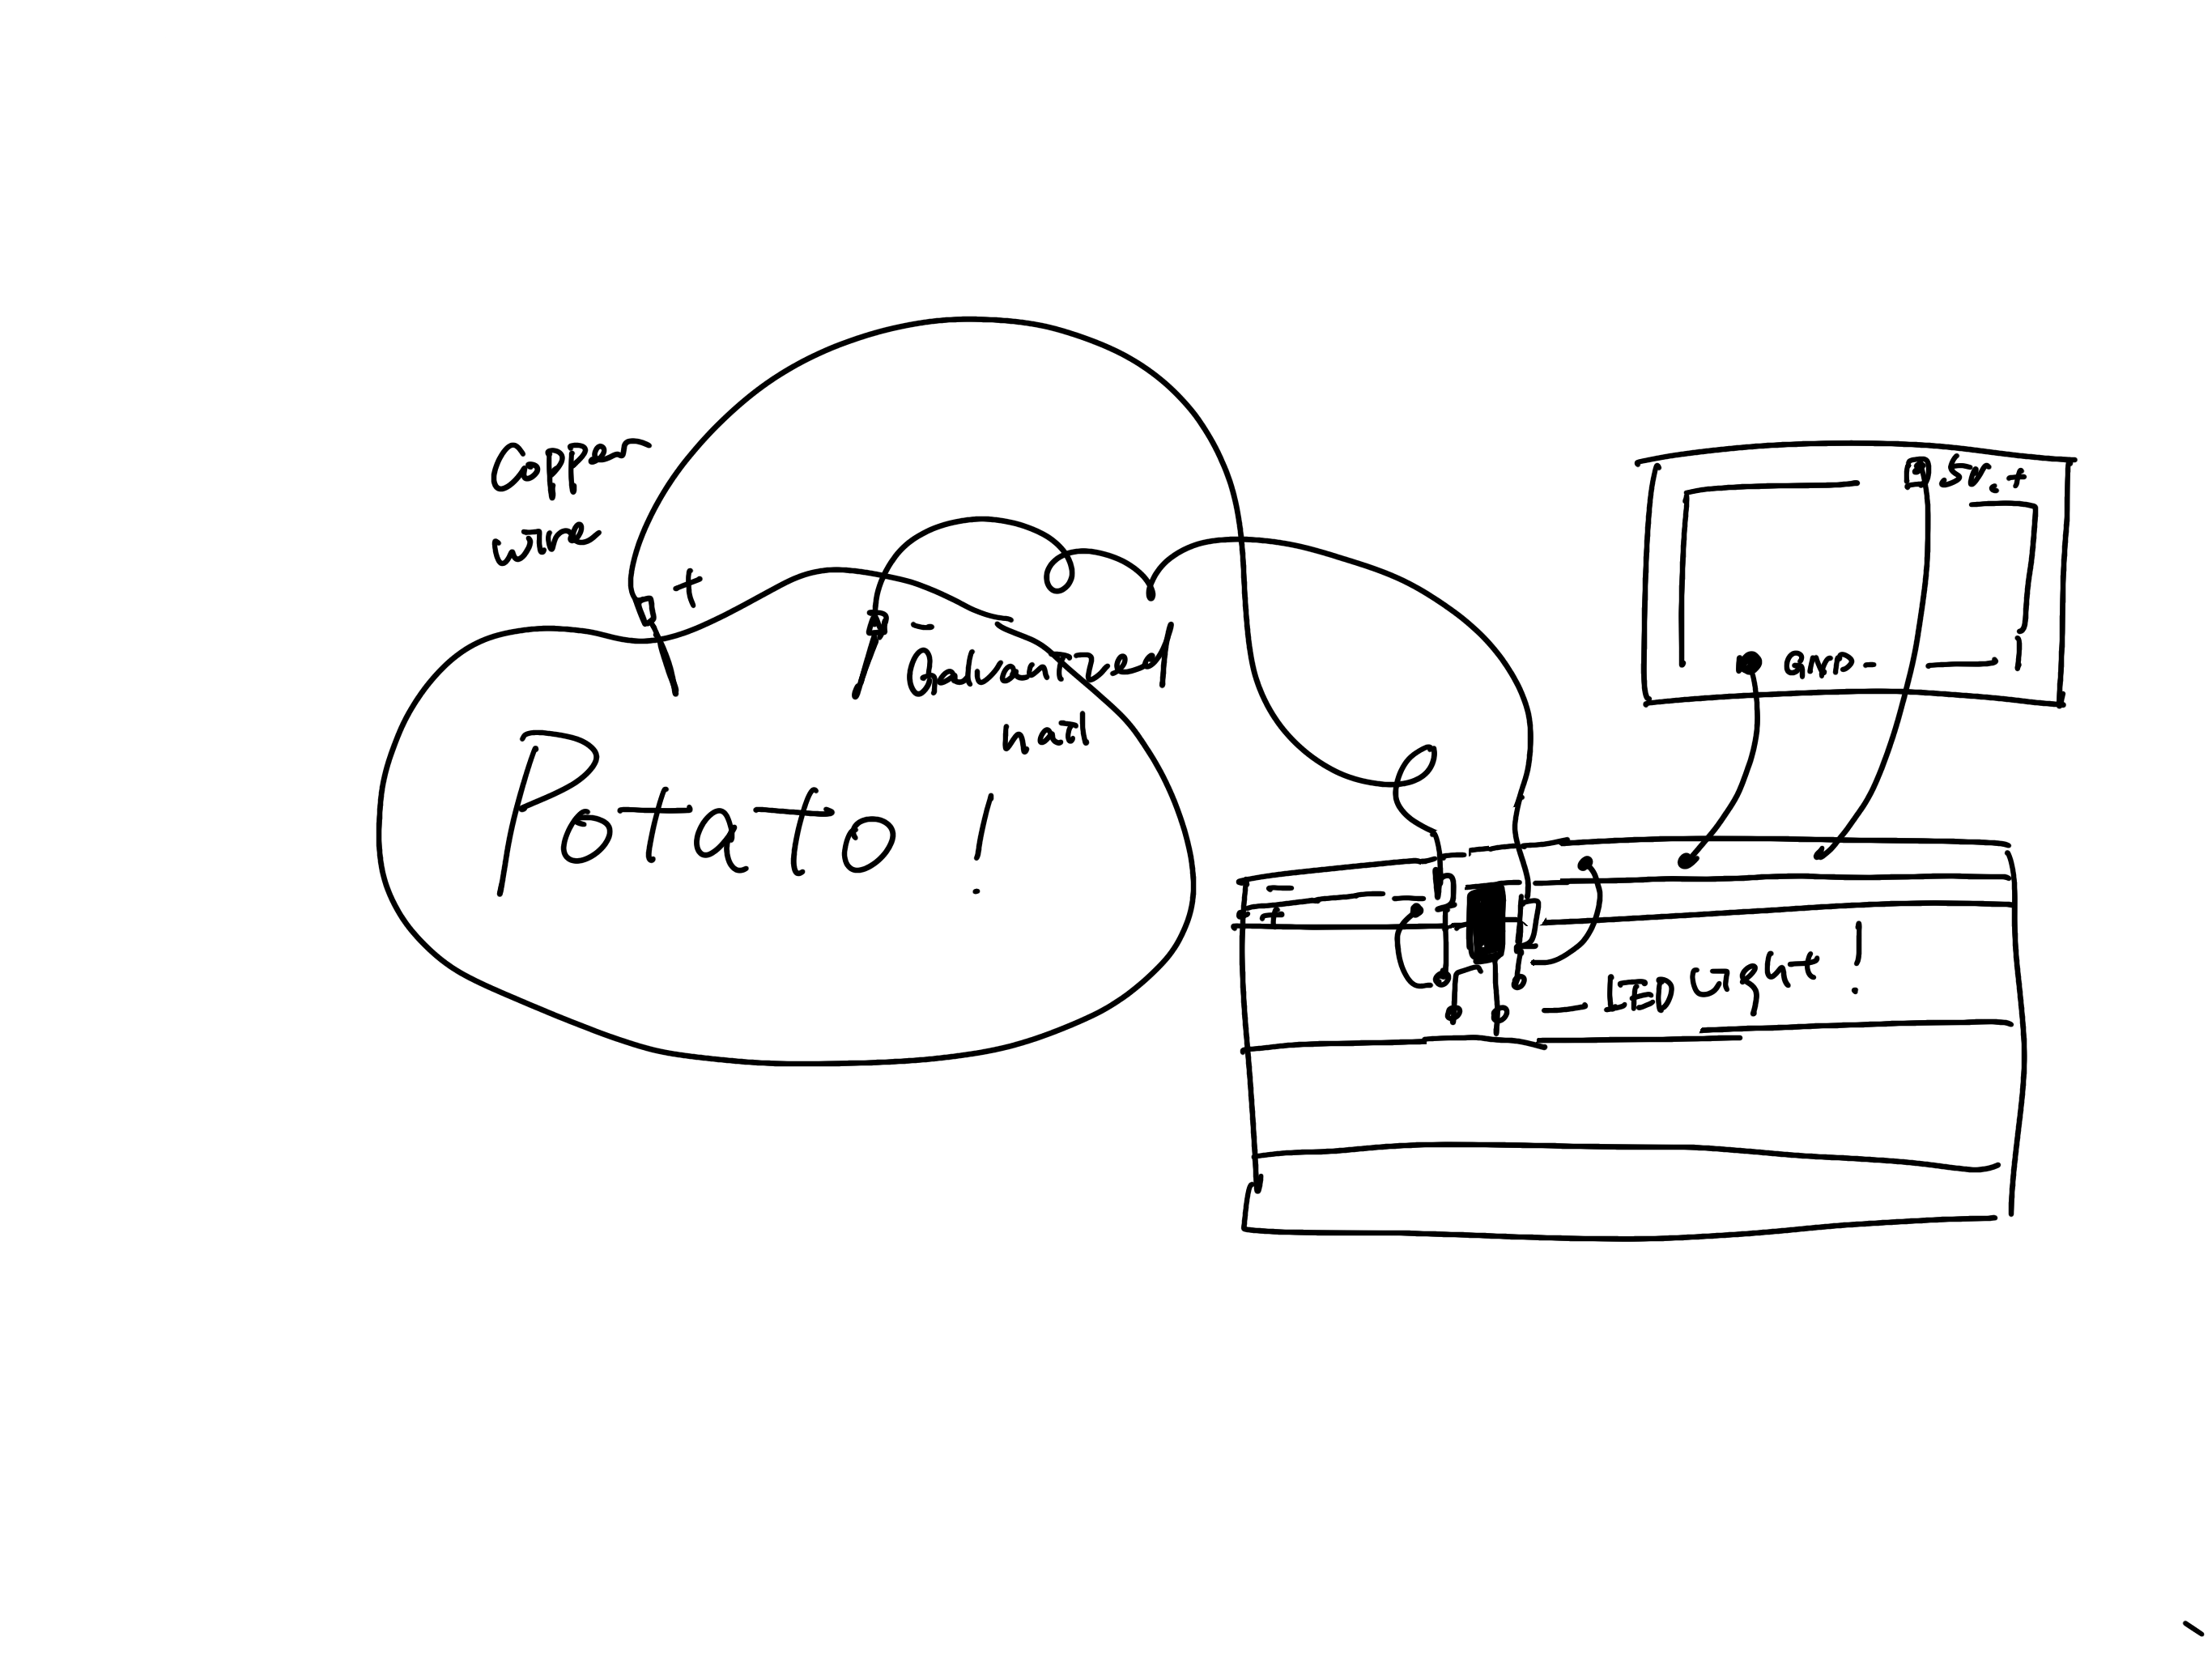 Copper
wire
+
-
Galvanized
nail
Potato!
5V.+
GND-
-
+
LED Light!